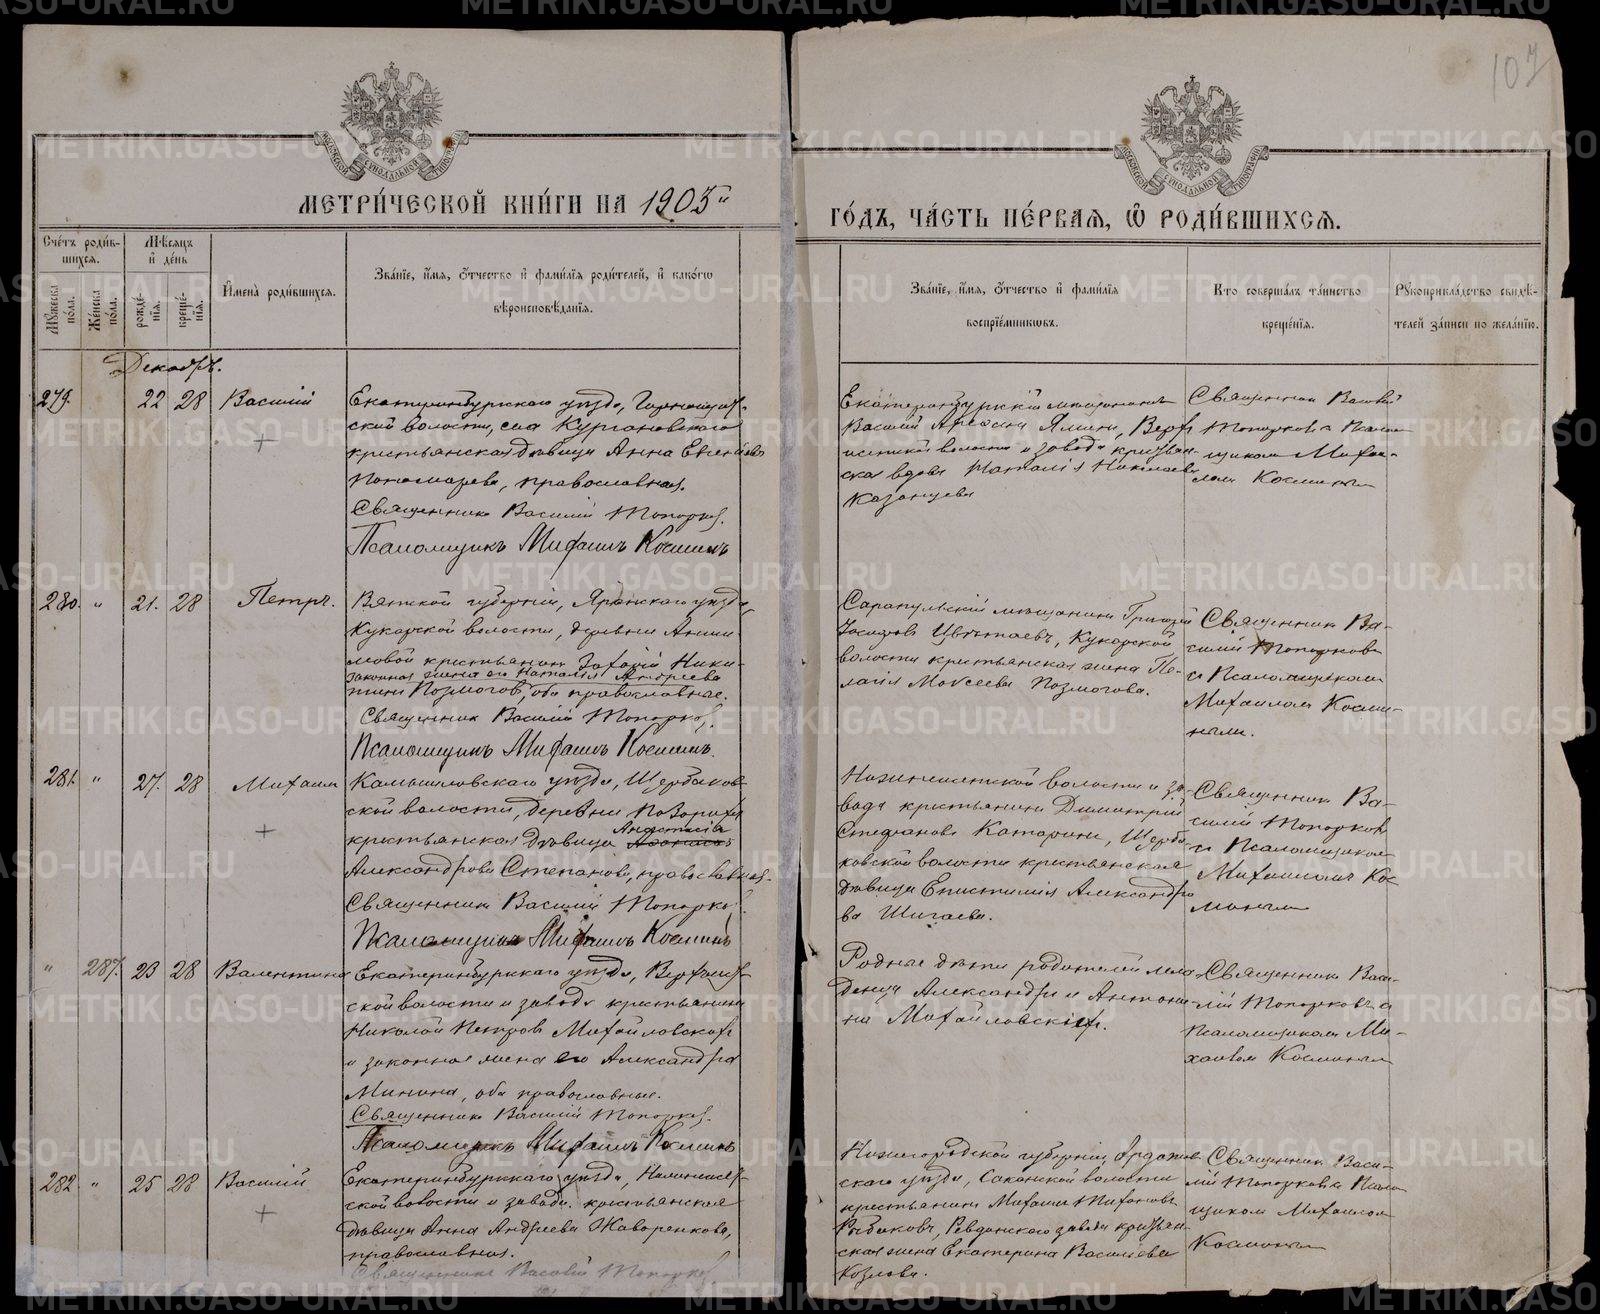 107
МОСКОВСКОЙ СѴНОДАЛЬНОЙ ТИПОГРАФІИ
МОСКОВСКОЙ СѴНОДАЛЬНОЙ ТИПОГРАФІИ
МЕТРИ́ЧЕСКОЙ КНИ́ГИ НА 1905й
ГО́ДЪ, ЧА́СТЬ ПЕ́РВАЯ, Ѿ РОДИ́ВШИХСЯ.
Сче́тъ роди́вшихся.
Мужеска по́ла.
Же́нска по́ла.
Мѣ́сяцъ и҆ де́нь
рожде́нїя.
креще́нїя.
И҆мена̀ роди́вшихся.
Зва́нїе, и҆́мя, ѻ҆́тчество и҆ фами́лїя роди́телей, и҆ како́гѡ
вѣроисповѣ́данїя.
Зва́нїе, и҆́мя, ѻ҆́тчество и҆ фами́лїя
воспрїе́мникѡвъ.
Кто̀ соверша́лъ та́инство
креще́нїя.
Рꙋкоприкла́дство свидѣ́-
телей за́писи по жела́нїю.
Декабрь.
279. 22 28 Василій
Екатеринбургскаго уѣзда, Горнощит-
ской волости, села Кургановскаго
крестьянская дѣвица Анна Евгеніева
Пономарева, православная.
Священникъ Василій Топорков.
Псаломщикъ Михаилъ Косминъ
Екатеринбургскій мѣщанинъ
Василій Ямин, Верх-
исетской волости и завода крестьян-
ская вдова Наталія Николаева
Казанцева
Священник Василій
Топорков и Псалом-
щиком Михаи-
лом Косминым
280. " 21. 28 Петръ.
Вятской губерніи, Яранскаго уѣзда,
Кукарской волости, деревни Аниси-
мовой крестьянин Захарій Ники-
законная жена его Наталія Андреева
тин Позмогов, оба православные.
Священник Василій Топорков.
Псаломщикъ Михаилъ Косминъ.
Сарапульскій мѣщанин Григорій
Цвѣтаевъ, Кукарской
волости крестьянская жена Пе-
лагія Моисеева Позмогова.
Священник Ва-
силій Топорковъ
и Псаломщиком
Михаилом Косми-
ным.
281. " 27. 28 Михаил
Камышловскаго уѣзда, Щербаков-
ской волости, деревни
крестьянская дѣвица Анфисія
Александрова Степанова, православная.
Священник Василій Топорков.
Псаломщикъ Михаилъ Косминъ
волости и за-
вода крестьянинъ Димитрій
Стефановъ Катарин, Щерба-
ковской волости крестьянская
дѣвица Епистимія Александро-
ва Шигаева.
Священник Ва-
силій Топорков
и Псаломщиком
Михаилом Кос-
миным
" 287. 23 28 Валентина
Екатеринбургскаго уѣзда, Верхисет-
ской волости и завода крестьянин
Николай Петров Михайловских
и законная жена его Александра
Минина, оба православные.
Священник Василій Топорков.
Псаломщикъ Михаилъ Косминъ
Родные дѣти родителей мла-
денца Александр и Антони-
на Михайловскіе.
Священник Васи-
лій Топорковъ и
Псаломщиком Ми-
хаилом Косминым
282. " 25 28 Василій
Екатеринбургскаго уѣзда,
ской волости и завода крестьянская
дѣвица Анна Андреева Жаворонкова,
православная.
Священник Василій Топорков
Нижегородской губерніи Ардатов-
скаго уѣзда, Саконской волости
крестьянин Михаил Тихонов
Рыбаковъ, Ревдинскаго завода крестьян-
ская жена Екатерина Васильева
Козлова.
Священник Васи-
лій Топорков и Псалом-
щиком Михаилом
Косминым
METRIKI.GASO-URAL.RU